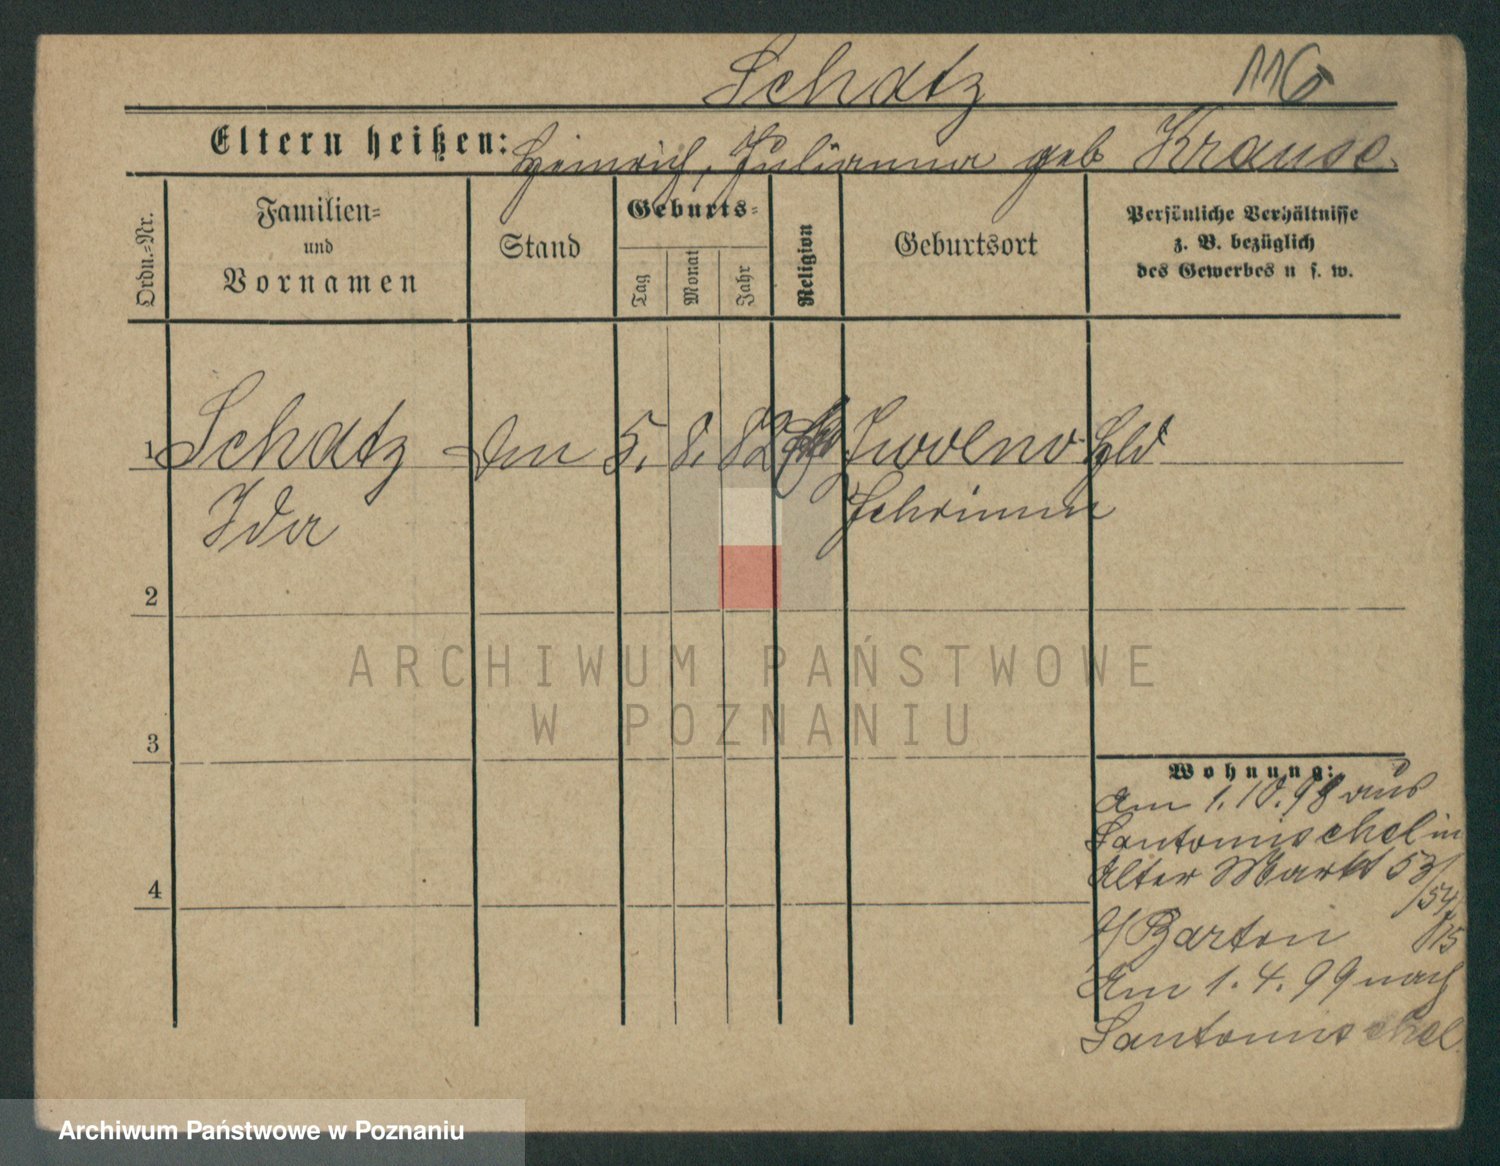 Schatz 116
Eltern heißen: Heinrich, Julianna geb Krause
Ordn.=Nr.
Familien=
und
Vornamen
Stand
Geburts=
Tag
Monat
Jahr
Religion
Geburtsort
Persönliche Verhältnisse
z. B. bezüglich
des Gewerbes u s. w.
1 Schatz 5. 8. 82 Hld
Ida Schrimm
2
3
4
Wohnung:
Am 1.10.98 aus
Santomischel in
Alter Markt 53/
/54
b/ Barton 15
Am 1.4.99 nach
Santomischel
ARCHIWUM PAŃSTWOWE
W POZNANIU
Archiwum Państwowe w Poznaniu